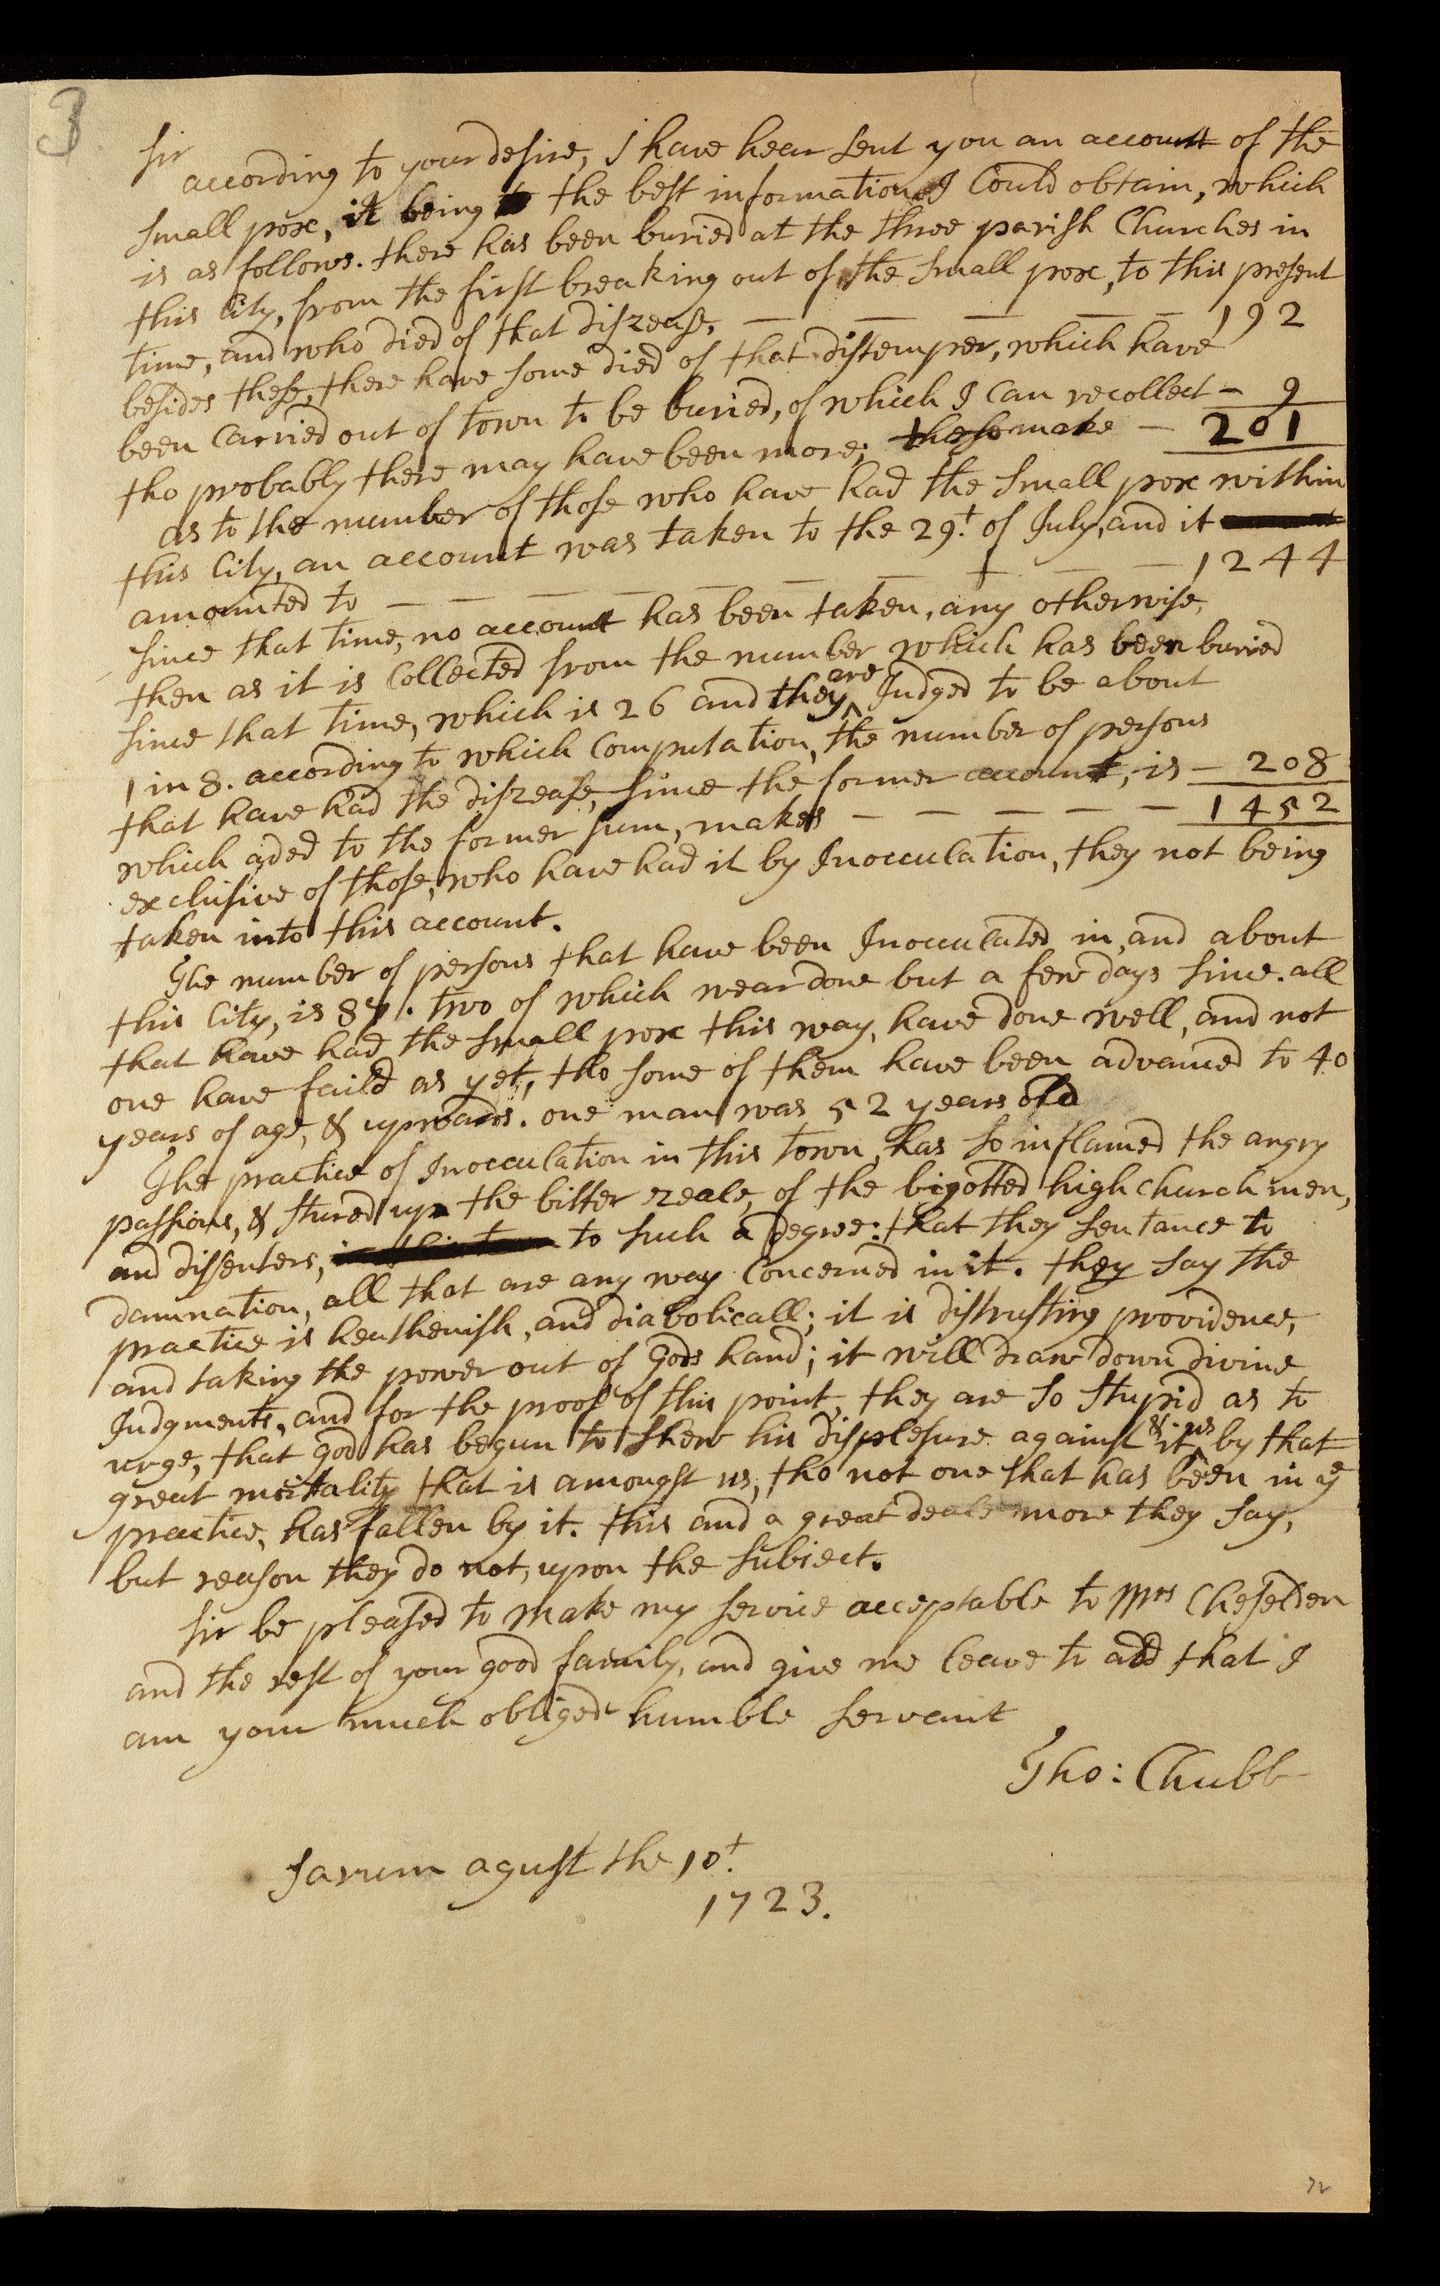 3
Sir
according to your desire, I have hear sent you an account of the
small pox, it being the best information I Could obtain, which
is as follows. there has been buried at the three parish Churches in
this City, from the first breaking out of the small pox, to this present
time, and who died of that diszease, — — — — — 192
besides these, there have some died of that distemper, which have
been Carried out of town to be buried, of which I Can recollect — 9
tho probably there may have been more; these make — 201
as to the number of those who have had the small pox within
this City, an account was taken to the 29.t of July, and it
amounted to — — — — — — — — 1244
since that time, no account has been taken, any otherwise,
then as it is Collected from the number which has been buried
since that time, which is 26 and they are Judged to be about
1 in 8. according to which Computation, the number of persons
that have had the diszease, since the former account, is — 208
which aded to the former sum, makes — — — — — 1452
exclusive of those, who have had it by Inocculation, they not being
taken into this account.
The number of persons that have been Inocculated in, and about
this City, is . two of which wear done but a few days since. all
that have had the small pox this way, have done well, and not
one have faild as yet, tho some of them have been advanced to 40
years of age, & upwards. one man was 52 years old
The practice of Inocculation in this town, has so inflamed the angry
passions, & stured up the bitter zeale, of the bigotted high church men,
and dissenters, to such a degree: that they sentance to
damnation, all that are any way Concerned in it. they say the
practice is heathenish, and diabolicall; it is distrusting providence,
and taking the power out of Gods hand; it will draw down divine
Judgments, and for the proof of this point, they are so stupid as to
urge, that god has begun to shew his displesure against it & us by that
great mortality that is amongst us, tho not one that has been in ye
practice, has fallen by it. this and a great deale more they say,
but reason they do not, upon the subiect.
Sir be pleased to make my service acceptable to Mrs Cheselden
and the rest of your good family, and give me leave to add that I
am your much obliged humble servant
Tho: Chubb
Sarum agust the 10.t
1723.